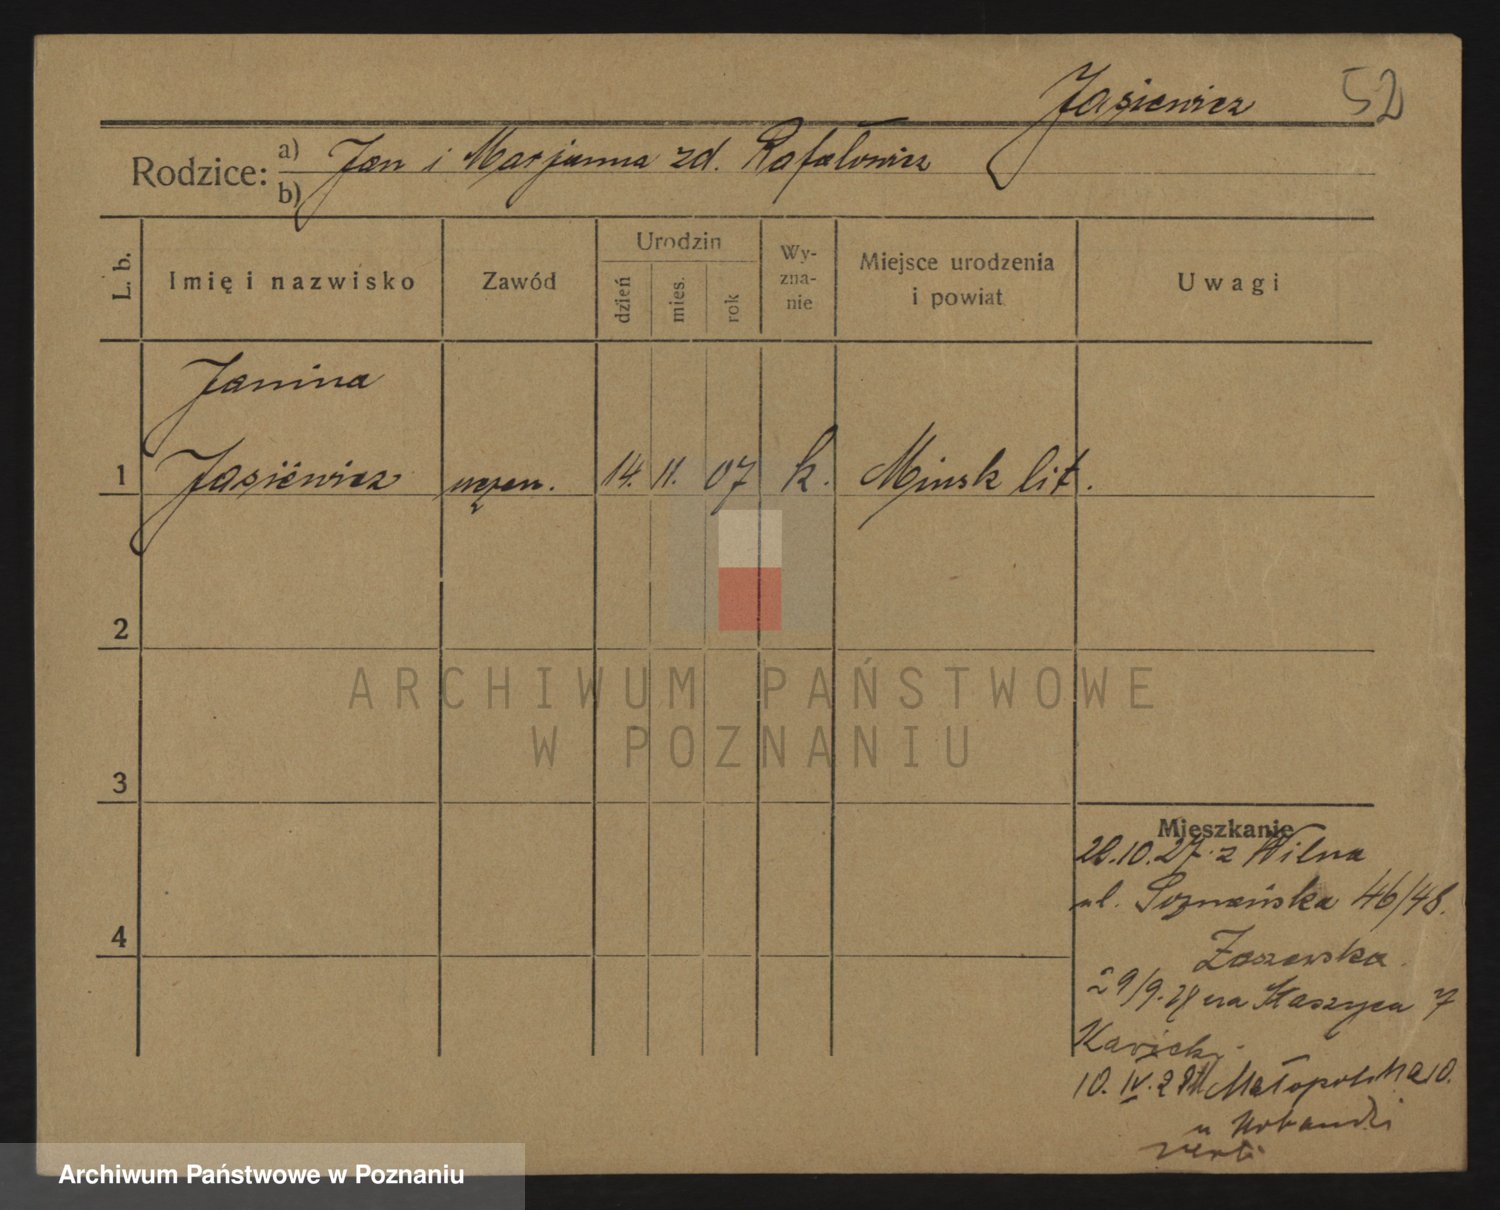 52
Jasiewicz
Rodzice: a) Jan i Marjanna zd. Rafałowicz
b)
L. b.
Imię i nazwisko
Zawód
Urodzin
dzień
mies.
rok
Wy-
zna-
nie
Miejsce urodzenia
i powiat
Uwagi
Janina
1 Jasiewicz uczen. 14. 11. 07 k. Minsk lit.
2
3
4
Mieszkanie
28.10.27 z Wilna
ul. Poznańska 46/48.
29/9.28 na Staszyca 7
10. IV. 29 Małopolska 10.
u
verte
ARCHIWUM PAŃSTWOWE
W POZNANIU
Archiwum Państwowe w Poznaniu